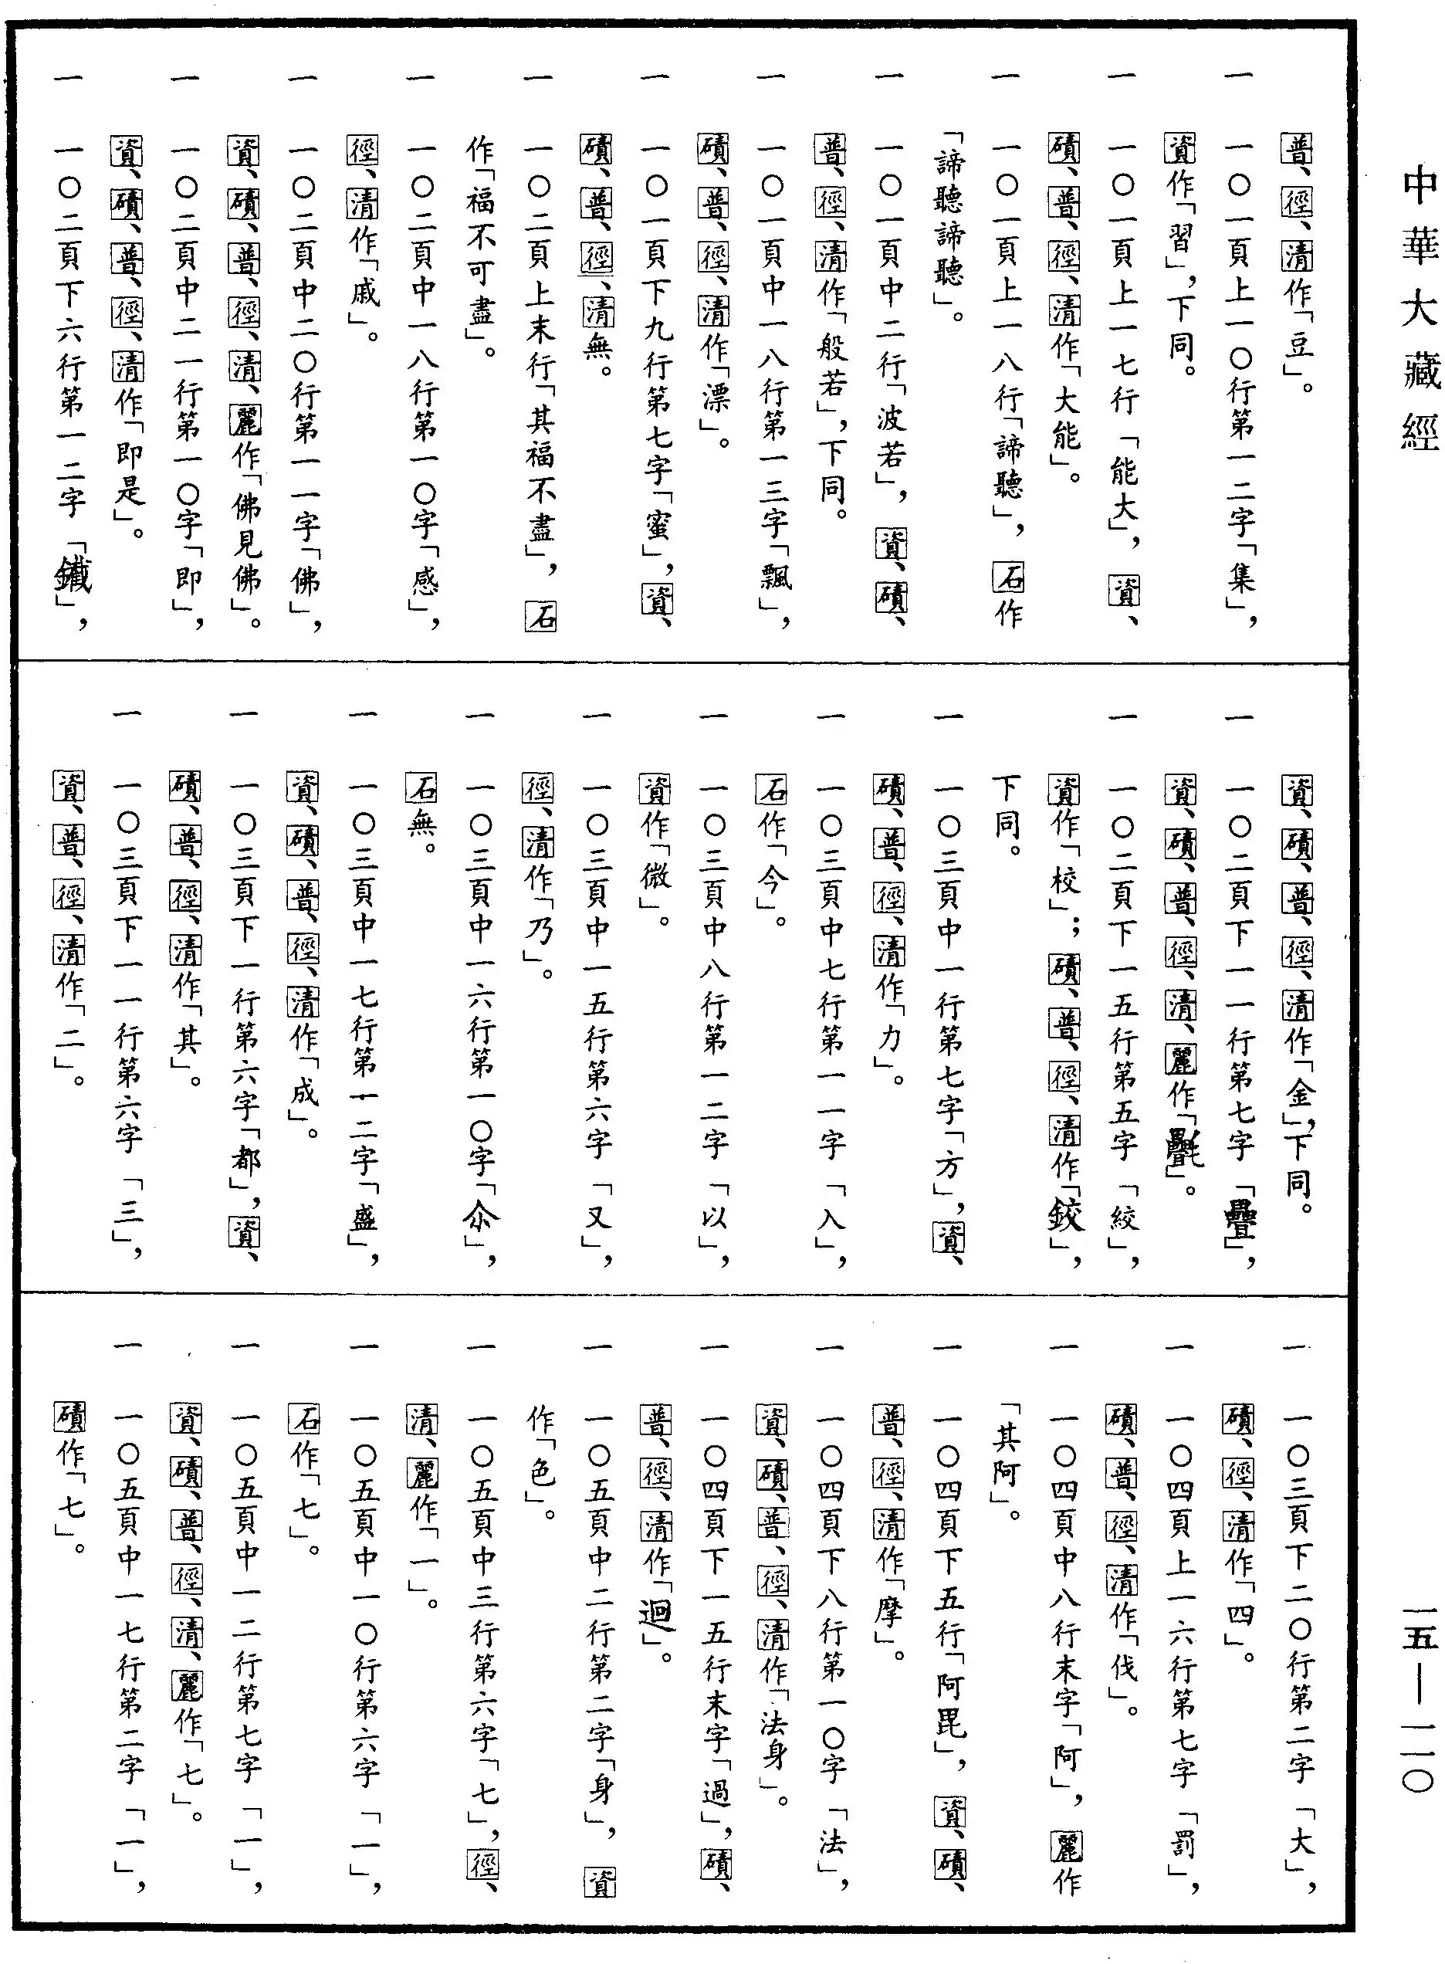 中華大藏經
一五—一一〇
普、徑、清作「豆」。
一 一〇一頁上一〇行第一二字「集」，
資作「習」，下同。
一 一〇一頁上一七行「能大」，資、
磧、普、徑、清作「大能」。
一 一〇一頁上一八行「諦聽」，石作
「諦聽諦聽」。
一 一〇一頁中二行「波若」，資、磧、
普、徑、清作「般若」，下同。
一 一〇一頁中一八行第一三字「飄」，
磧、普、徑、清作「漂」。
一 一〇一頁下九行第七字「蜜」，資、
磧、普、徑、清無。
一 一〇二頁上末行「其福不盡」，石
作「福不可盡」。
一 一〇二頁中一八行第一〇字「感」，
徑、清作「戚」。
一 一〇二頁中二〇行第一一字「佛」，
資、磧、普、徑、清、麗作「佛見佛」。
一 一〇二頁中二一行第一〇字「即」，
資、磧、普、徑、清作「即是」。
一 一〇二頁下六行第一二字「鐵」，
資、磧、普、徑、清作「金」，下同。
一 一〇二頁下一一行第七字「疊」，
資、磧、普、徑、清、麗作「氎」。
一 一〇二頁下一五行第五字「絞」，
資作「校」；磧、普、徑、清作「鉸」，
下同。
一 一〇三頁中一行第七字「方」，資、
磧、普、徑、清作「力」。
一 一〇三頁中七行第一一字「入」，
石作「今」。
一 一〇三頁中八行第一二字「以」，
資作「微」。
一 一〇三頁中一五行第六字「又」，
徑、清作「乃」。
一 一〇三頁中一六行第一〇字「尒」，
石無。
一 一〇三頁中一七行第一二字「盛」，
資、磧、普、徑、清作「成」。
一 一〇三頁下一行第六字「都」，資、
磧、普、徑、清作「其」。
一 一〇三頁下一一行第六字「三」，
資、普、徑、清作「二」。
一 一〇三頁下二〇行第二字「大」，
磧、徑、清作「四」。
一 一〇四頁上一六行第七字「罰」，
磧、普、徑、清作「伐」。
一 一〇四頁中八行末字「阿」，麗作
「其阿」。
一 一〇四頁下五行「阿毘」，資、磧、
普、徑、清作「摩」。
一 一〇四頁下八行第一〇字「法」，
資、磧、普、徑、清作「法身」。
一 一〇四頁下一五行末字「過」，磧、
普、徑、清作「迴」。
一 一〇五頁中二行第二字「身」，資
作「色」。
一 一〇五頁中三行第六字「七」，徑、
清、麗作「一」。
一 一〇五頁中一〇行第六字「一」，
石作「七」。
一 一〇五頁中一二行第七字「一」，
資、磧、普、徑、清、麗作「七」。
一 一〇五頁中一七行第二字「一」，
磧作「七」。